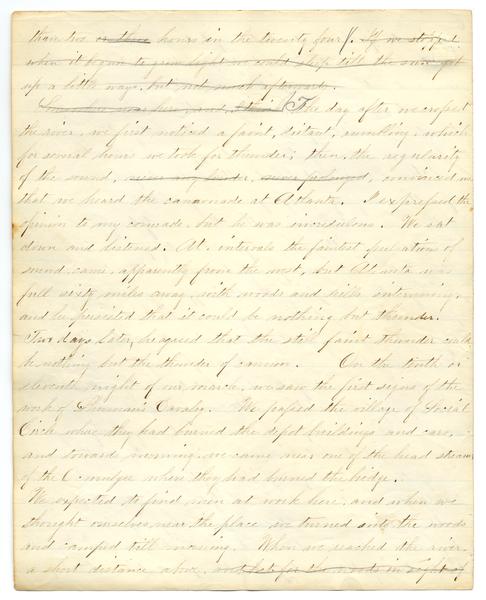 than two or three hours in the twenty four. If we stopped
when it began to grow light we could sleep till the sun got
up a little ways, but not much afterwards.
The day after we crossed
the river, we first noticed a faint, distant, rumbling, which
for several hours we took for thunder; then, the regularity
of the sound, never prolonged, convinced me
that we heard the cannonade at Atlanta. I expressed the
opinion to my comrade, but he was incredulous. We sat
down and listened. At intervals the faintest pulsations of
sound came, apparently from the west, but Atlanta was
full sixty miles away, with woods and hills intervening,
and he persisted that it could be nothing but thunder.
Two days later, he agreed that the still faint thunder could
be nothing but the thunder of cannon. On the tenth or
eleventh night of our march, we saw the first signs of the
work of Sherman's Cavalry. We passed the village of Social
Circle where they had burned the depot buildings and cars,
and towards morning, we came near one of the head streams
of the Ocmulgee where they had burned the bridge.
We expected to find men at work here, and when we
thought ourselves near the place we turned into the woods
and camped till morning. When we reached the river
a short distance above, in sight of